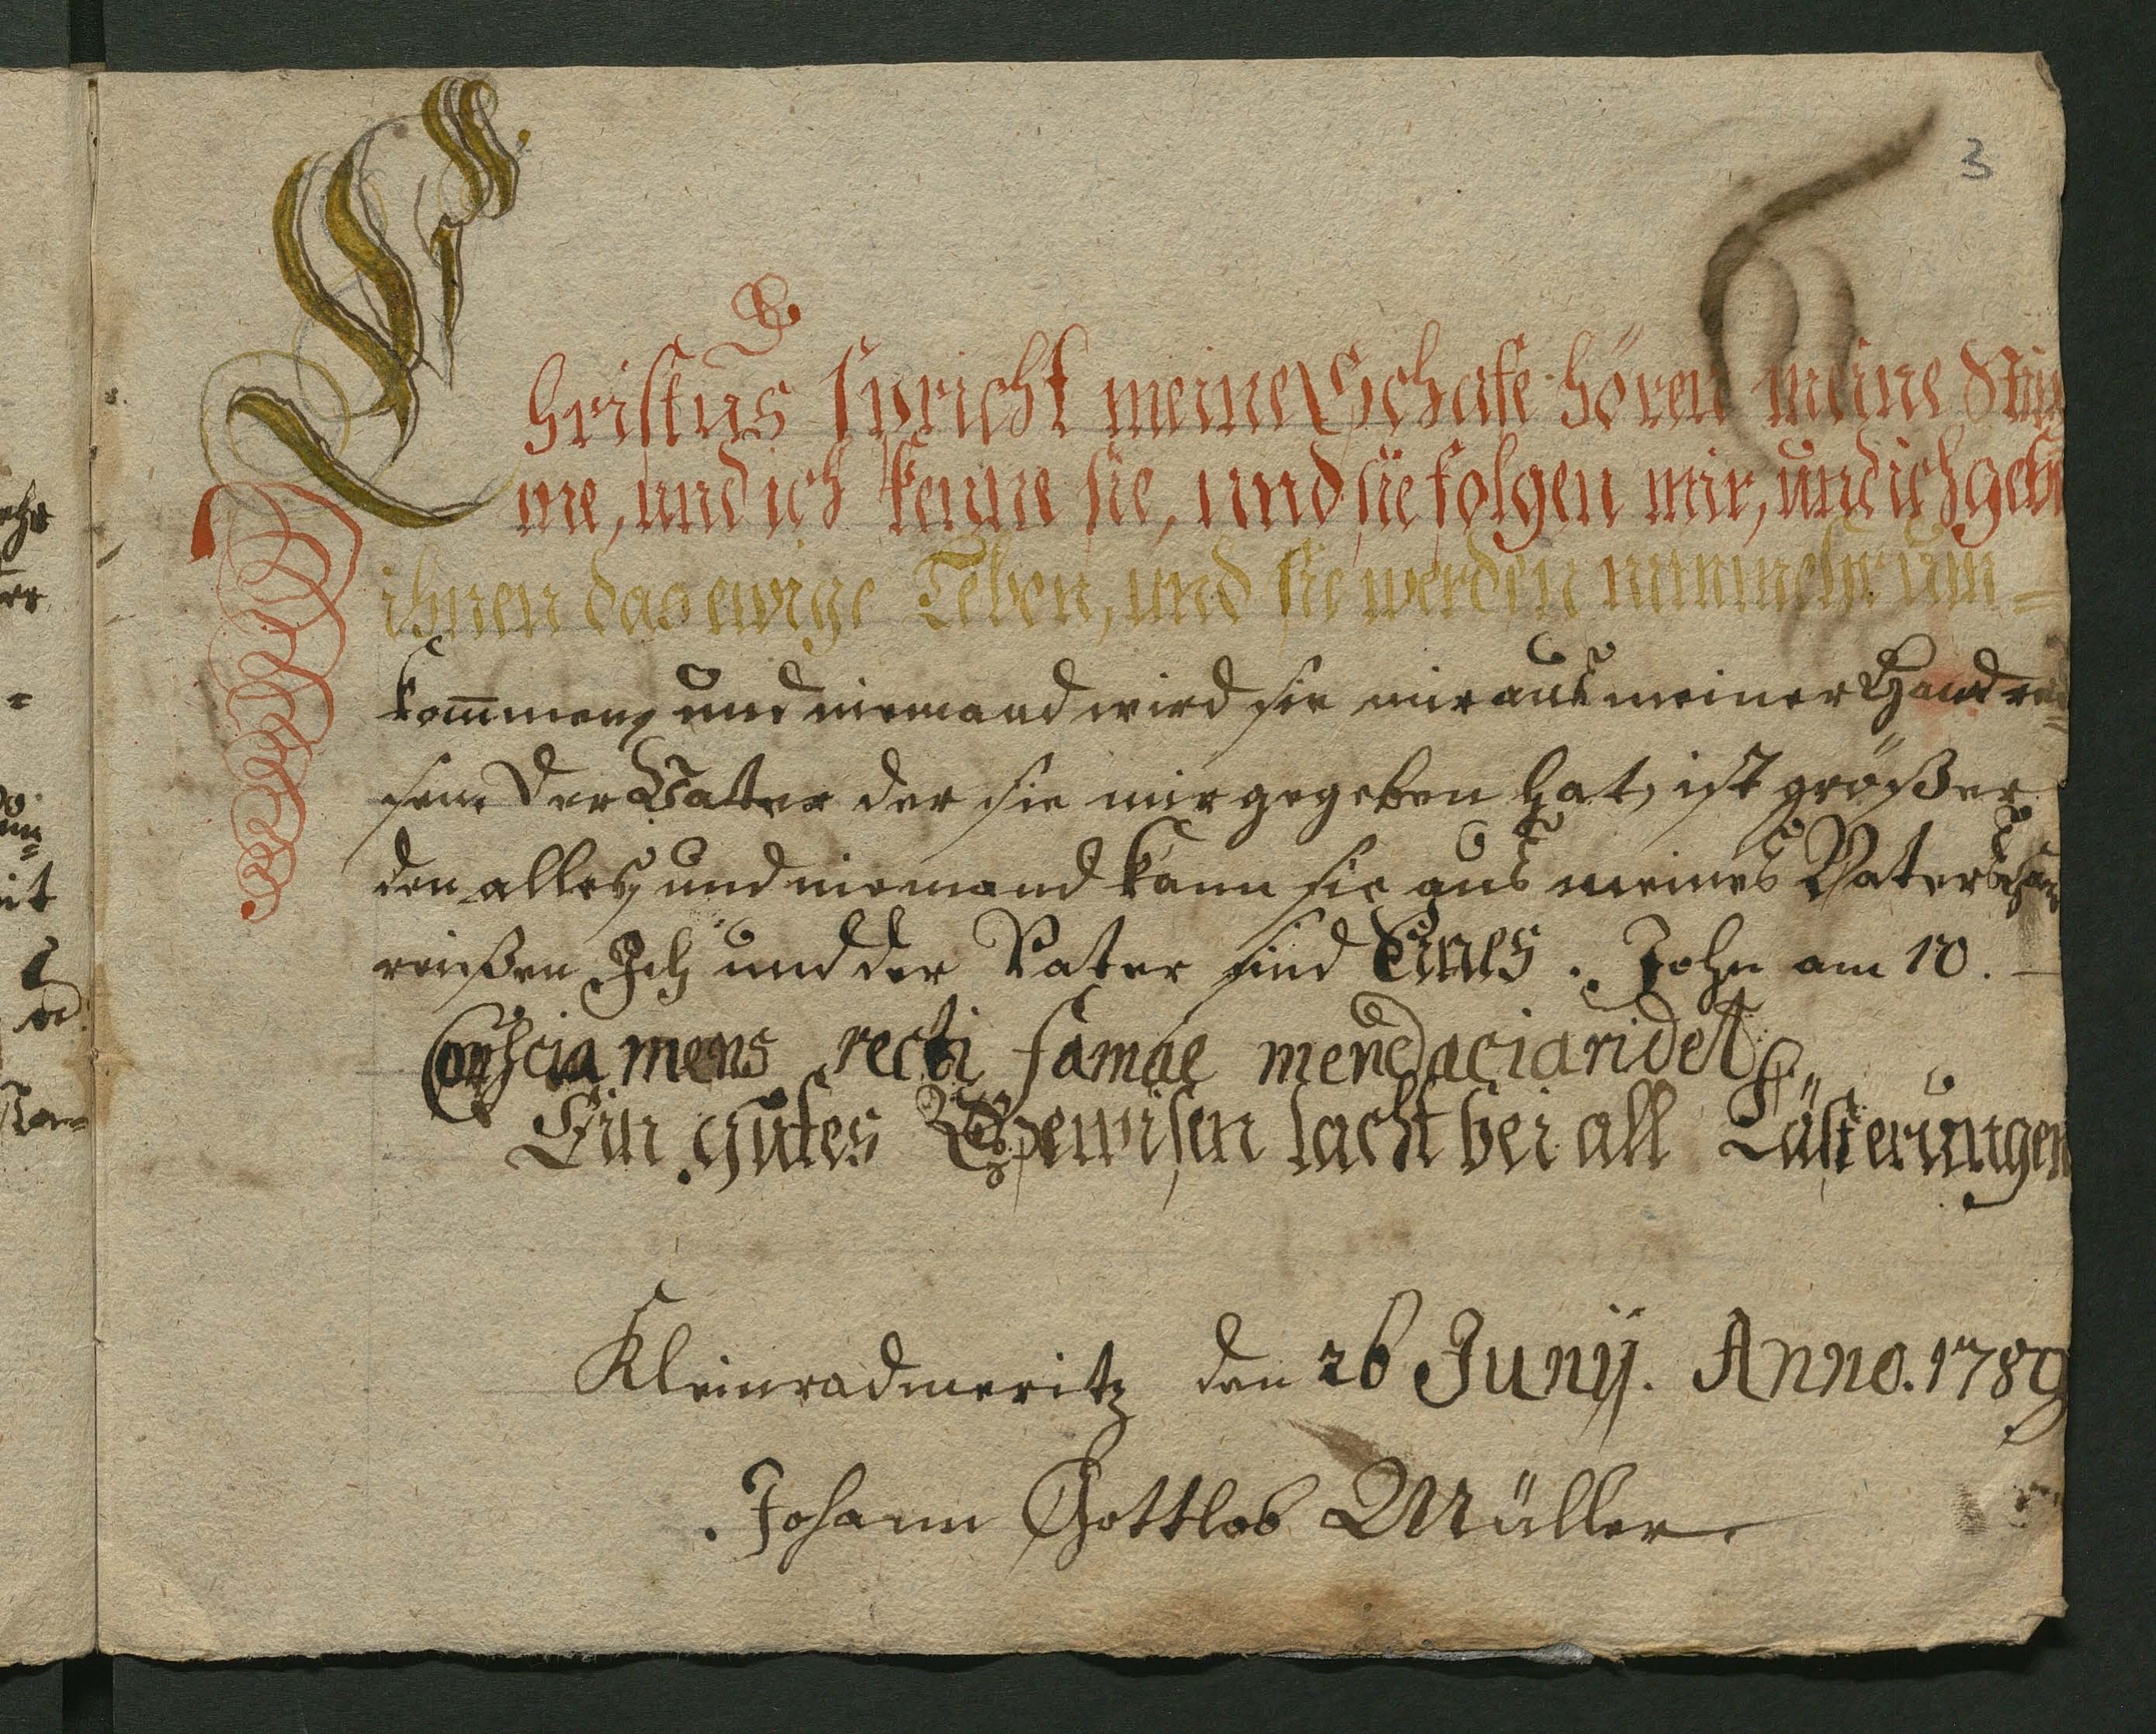 3
Christus spricht meine Schafe hören meine Stim
me, und ich kenne sie, und sie folgen mir, und ich gebe
ihnen das ewige Leben, und sie werden nimmehr um=
kommen, und niemand wird sie mir aus meiner Hand rei=
sen. Der Vatter der sie mir gegeben hat, ist größer
den alles, und niemand kann sie aus meines Vaters Hand
reißen Ich und der Vater sind Eines. John am 10.
Conscia mens recti famae mendacia ridet
Ein gutes Gewisen lacht bei all Lästerungen
Kleinradmeritz den 26 Junij. Anno. 1789
Johann Gottlob Müller.